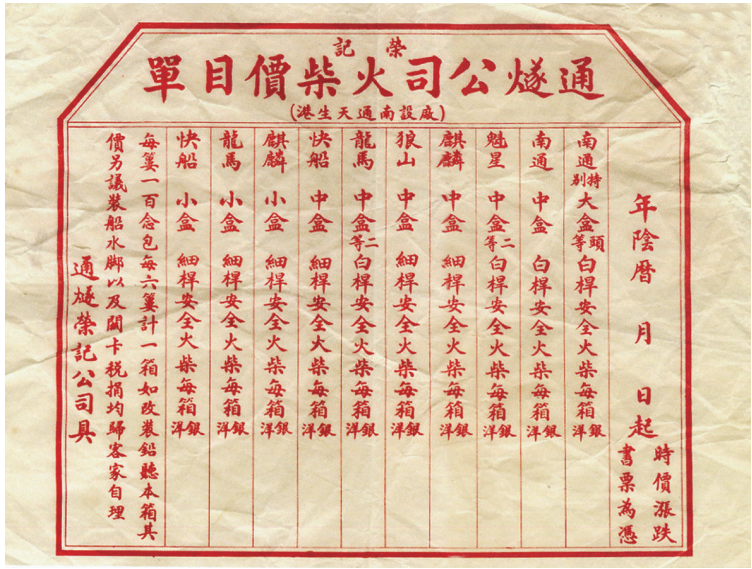 榮記
通燧公司火柴價目單
(廠設南通天生港)
年陰暦 月 日起
時價漲跌
書票為憑
南通特別大盒頭等白桿安全火柴每箱銀洋
南通中盒白桿安全火柴每箱銀洋
魁星中盒二等白桿安全火柴每箱銀洋
麒麟中盒細桿安全火柴每箱銀洋
狼山中盒細桿安全火柴每箱銀洋
龍馬中盒二等白桿安全火柴每箱銀洋
快船中盒細桿安全火柴每箱銀洋
麒麟小盒細桿安全火柴每箱銀洋
龍馬小盒細桿安全火柴每箱銀洋
快船小盒細桿安全火柴每箱銀洋
每簍一百念包每六簍計一箱如改裝鉛聽本箱其
價另議裝船水脚以及關卡税捐均歸客家自理
通燧榮記公司具